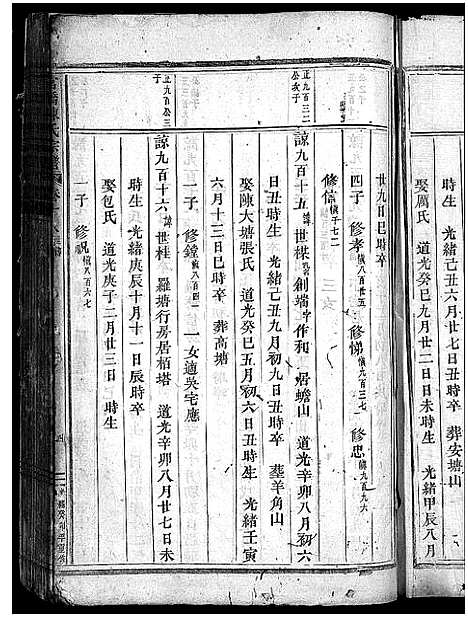 娶厲氏 道光癸巳九月廿二日日未時生 光緒甲辰八月
廿九日巳時卒 葬安塘
四子 修孝 慎八百廿五 修悌 慎九百三七 修忠 慎九百九六
修信 慎千七二
正九百三二公次子
諒九百十五 諱世楳 號創端 字作和 居蟾山 道光辛卯八月初六
日丑時生 光緒己丑九月初九日丑時卒 葬羊角山
娶陳大塘張氏 道光癸巳五月初六日丑時生 光緒壬寅
六月十三日巳時卒 葬高塘
一子 修鐘 慎八百四一 一女適吳宅應
正九百公三子
諒九百十六 諱世桂 羅塘行房居栢塔 道光辛卯八月廿七日未
時生 光緒庚辰十月十一日辰時卒
娶包氏 道光庚子二月廿三日 時生
一子 修祝 慎八百六七